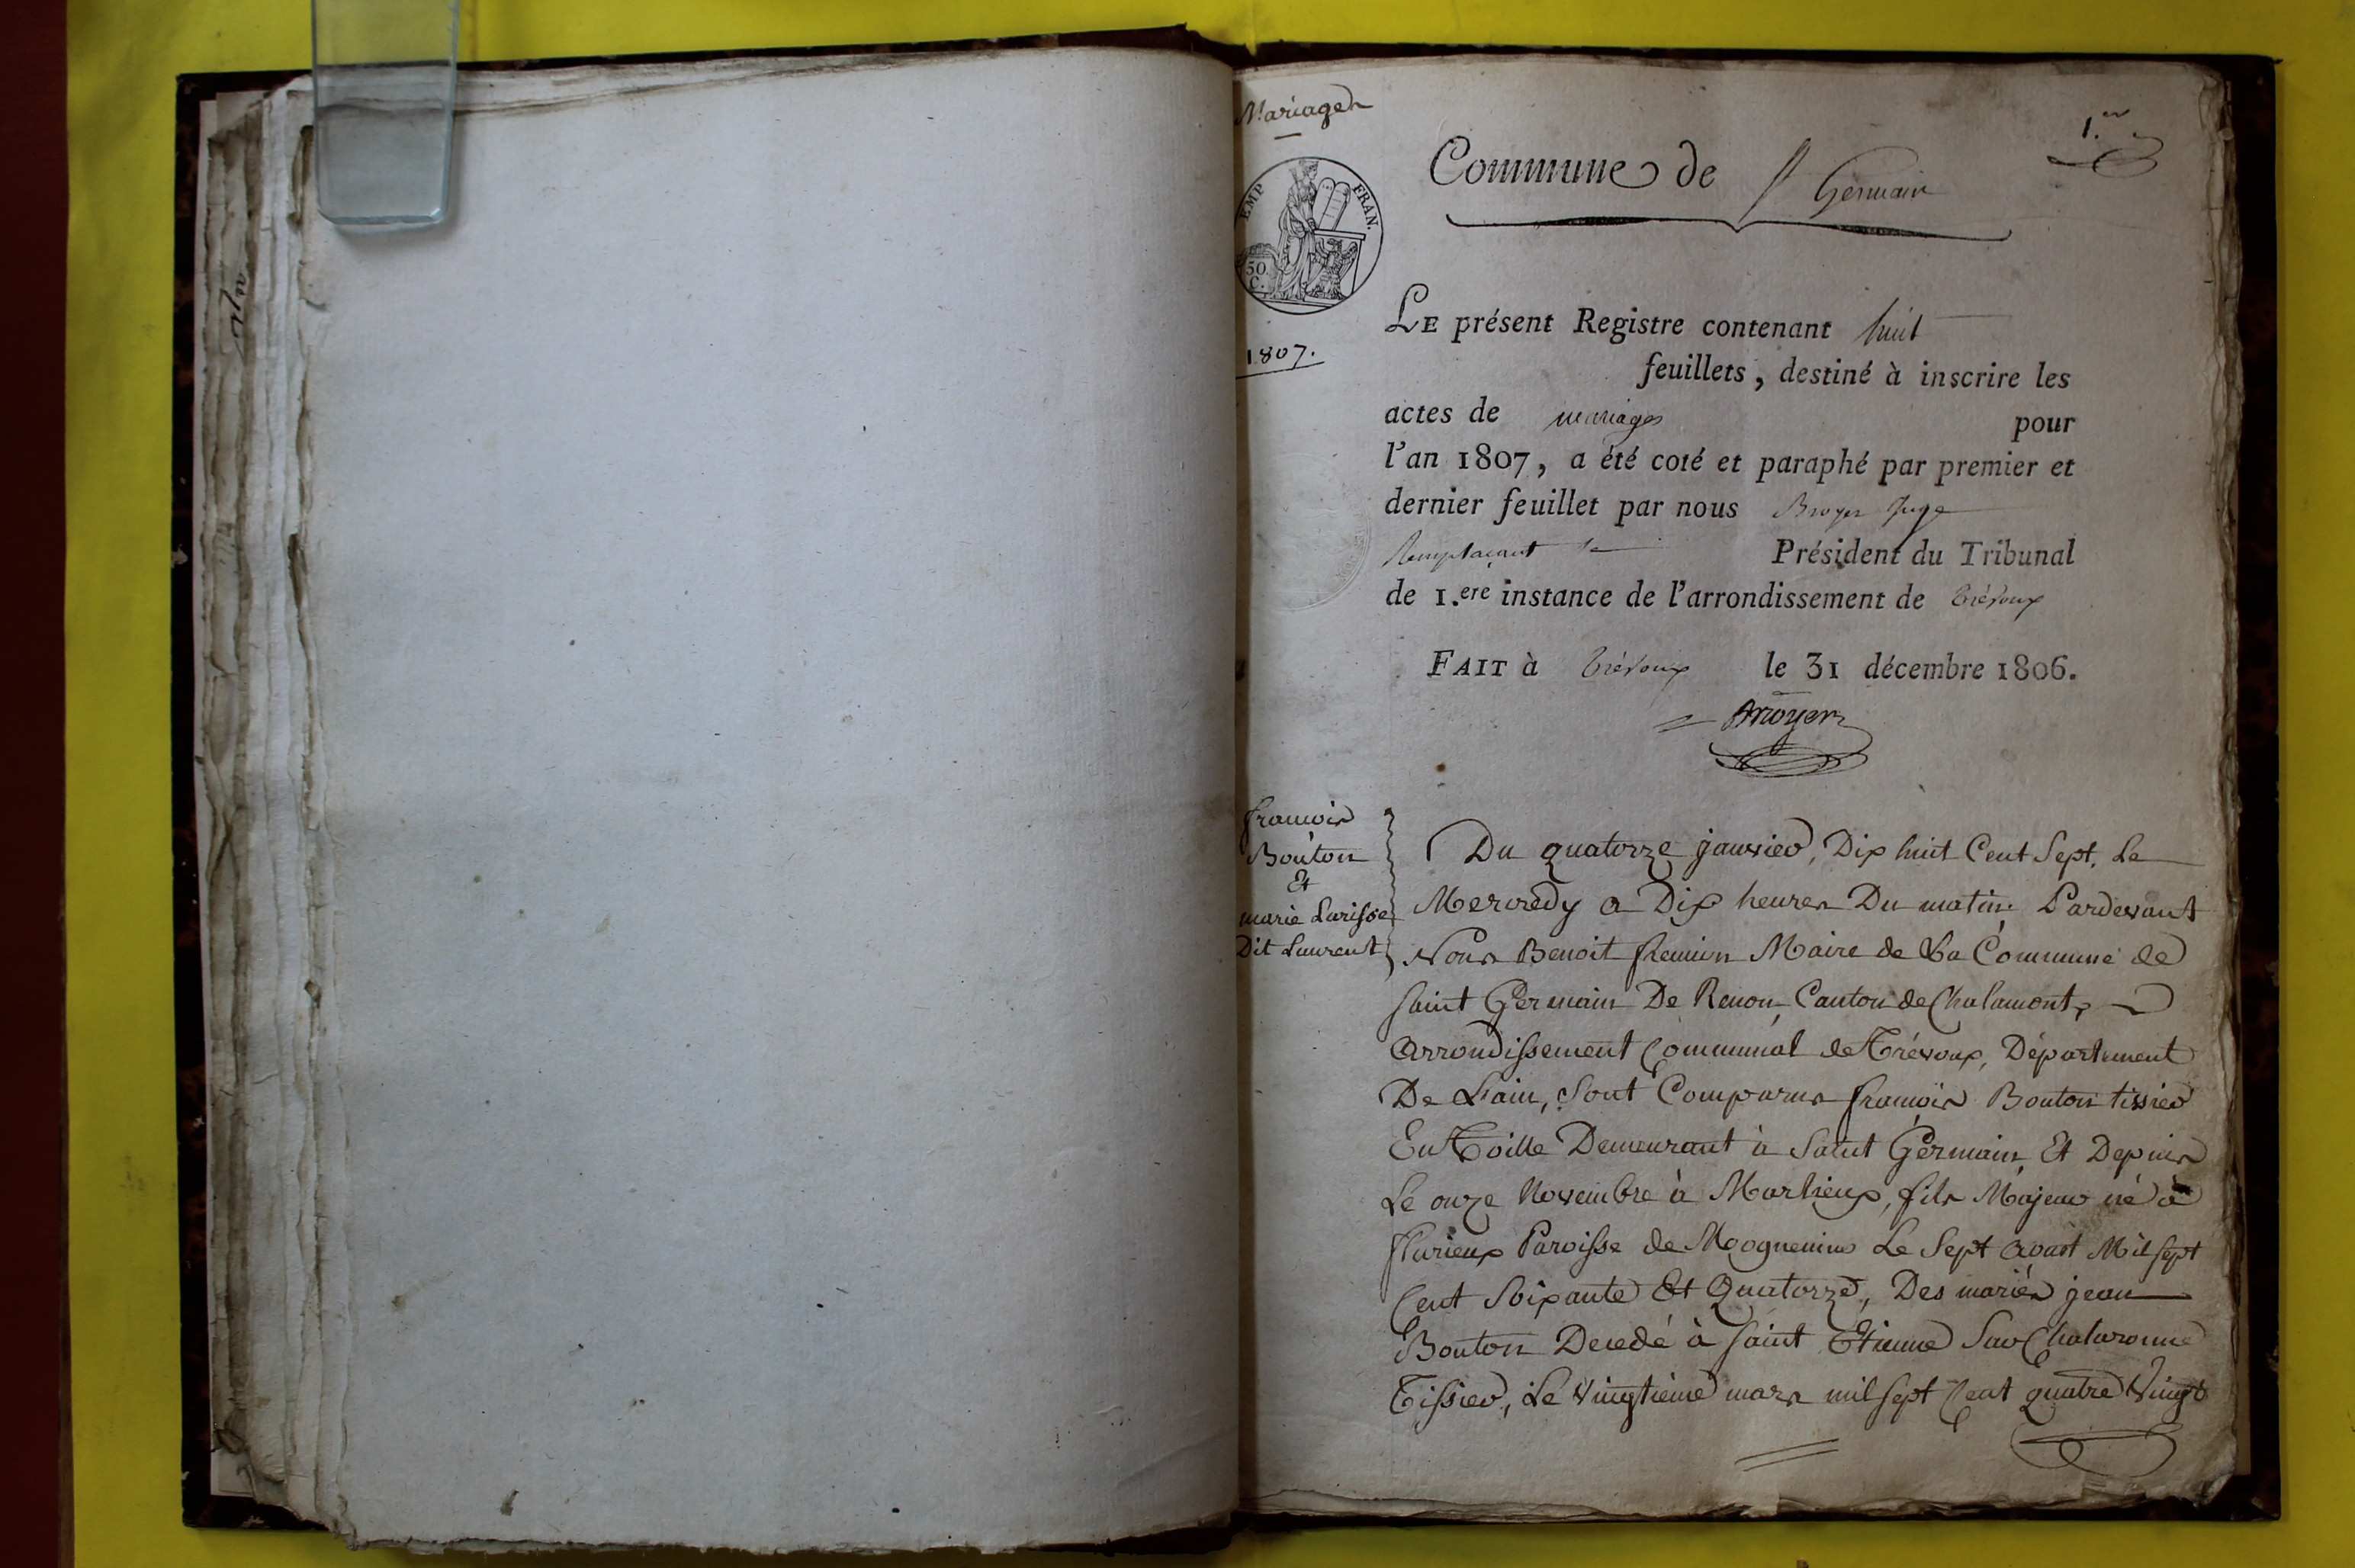 Mariages
1.er
Commune de St Germain
EMP FRAN.
50
C.
1807.
LE présent Registre contenant huit
feuillets, destiné à inscrire les
actes de mariages pour
l'an 1807, a été coté et paraphé par premier et
dernier feuillet par nous Broyer Juge
Remplacant le Président du Tribunal
de 1.ere instance de l'arrondissement de trévoux
FAIT à trévoux le 31 décembre 1806.
Broyer
francois
Bouton
Et
marie Larisse
Dit Laurent
Du quatorze janvier, Dix huit Cent Sept, Le
Mercredy a Dix heures Du matin Pardevant
Nous Benoit Maire de La Commune de
Saint Germain De Renon, Canton de Chalamont,
Arrondissement Communal de Trévoux, Département
De L'ain, Sont Comparus françois Bouton tissier
En Toille Demeurant à Saint Germain Et Depuis
Le onze Novembre à Marlieux, fils Majeur né à
flurieux Paroisse de Mogneneins Le Sept Aoust Mil sept
Cent Soixante Et Quatorze, Des mariés jean
Bouton Decedé à Saint Etienne Sur Chalaronne
Tissier, Le Vingtieme mars mil sept Cent quatre Vingt